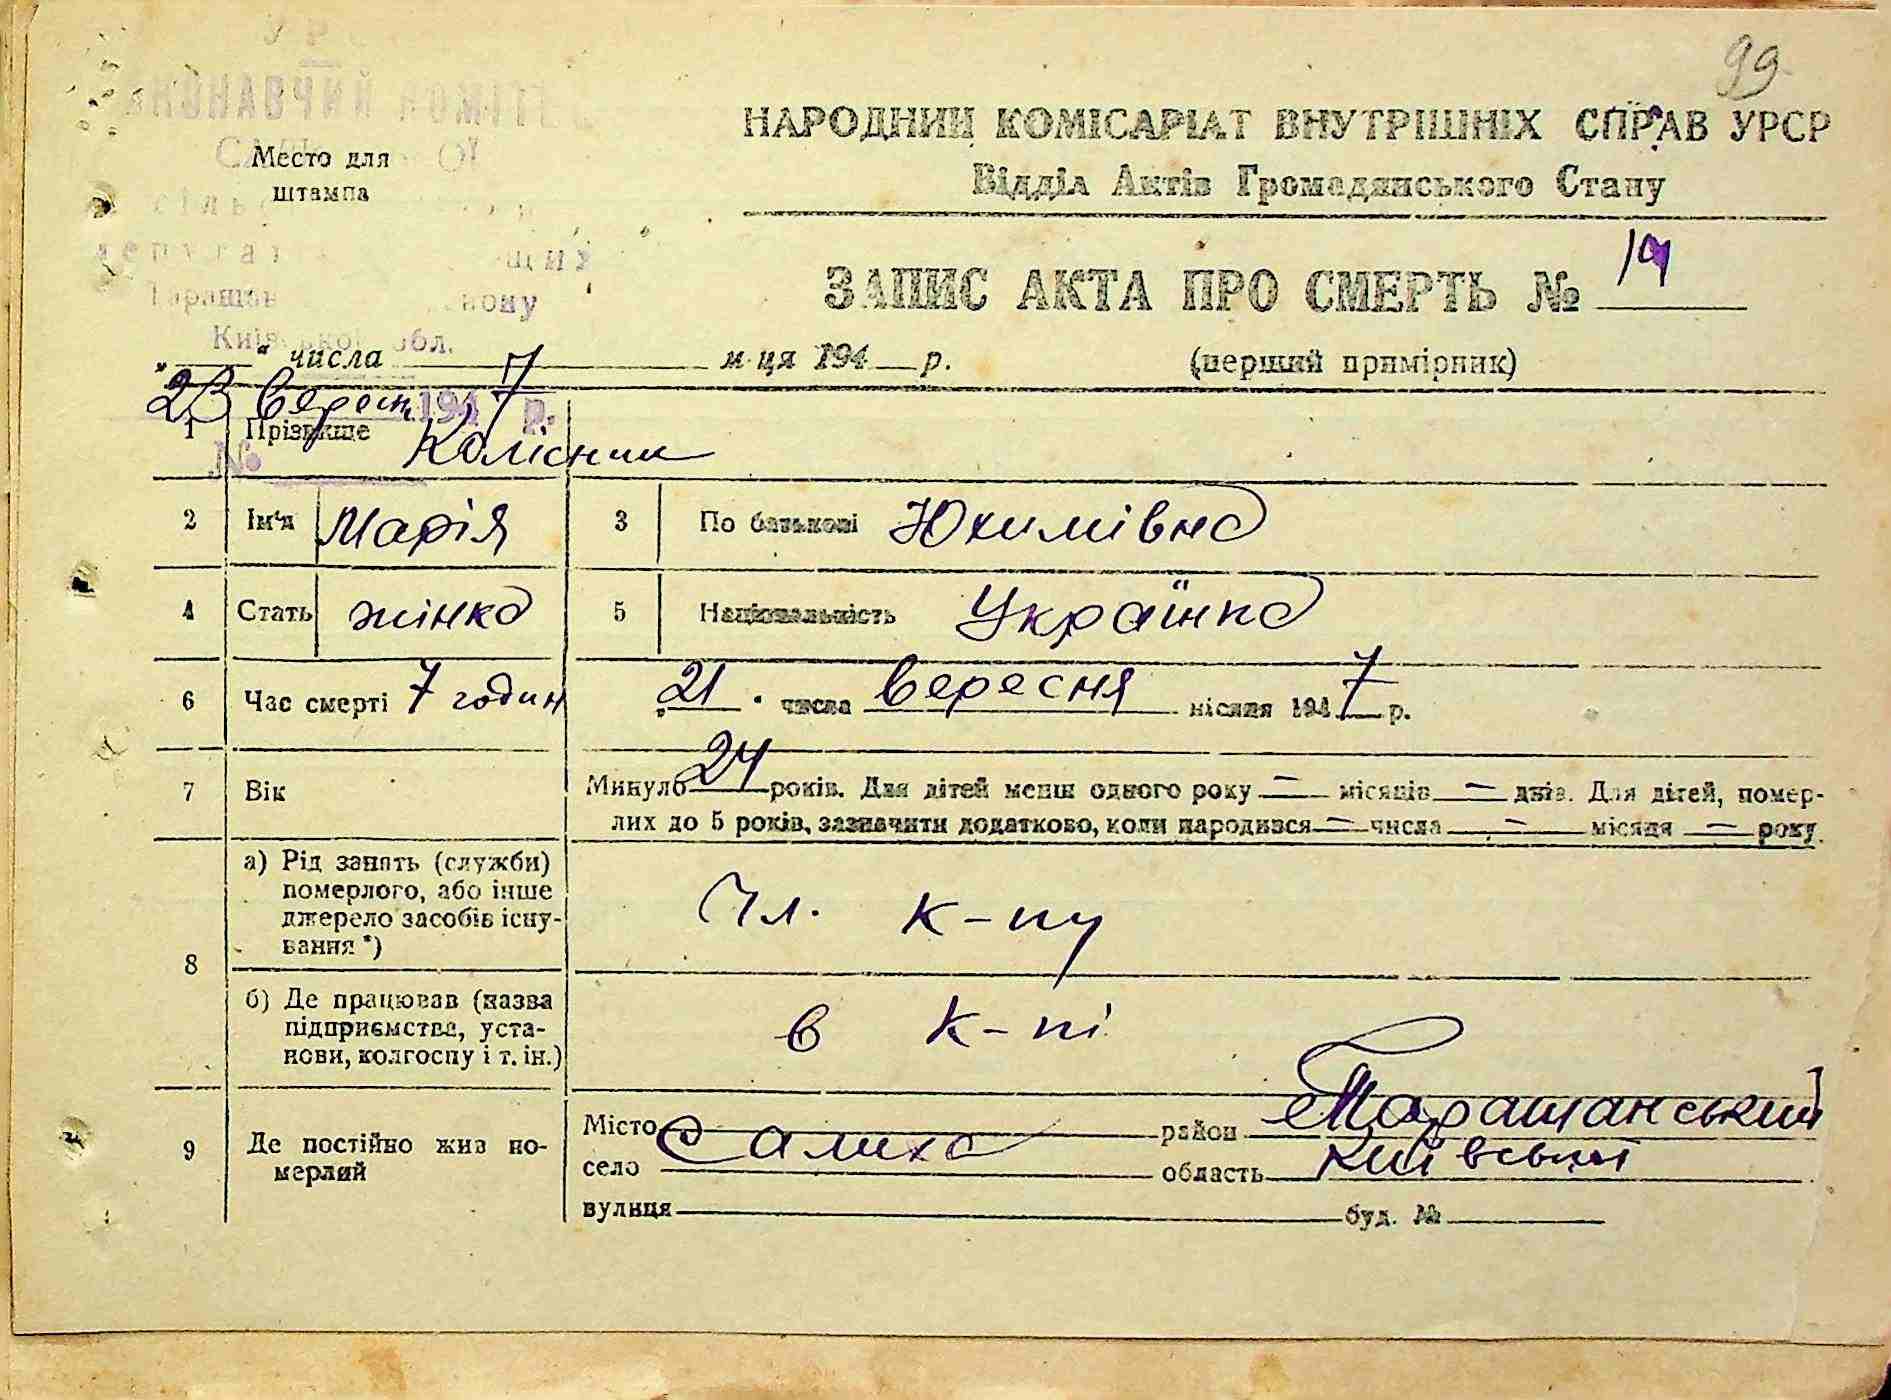 99
УР
ВИКОНАВЧИЙ КОМІТЕТ
Место для
штампа
НАРОДНИЙ КОМІСАРІАТ ВНУТРІШНІХ СПРАВ УРСР
Відділ Актів Громадянського Стану
ЗАПИС АКТА ПРО СМЕРТЬ № 19
(перший примірник)
Київської обл.
„ “ числа 7 м-ця 194 р.
23 вересн. 1947 р.
№
1 Прізвище Колісник
2 Ім'я Марія 3 По батькові Юхимівна
4 Стать жінка 5 Національність Українка
6 Час смерті 7 годин „21" числа вересня місяця 1947 р.
7 Вік Минуло 24 років. Для дітей менш одного року — місяців — днів. Для дітей, помер-
лих до 5 років, зазначити додатково, коли народився — числа — місяця — року.
8 а) Рід занять (служби)
померлого, або інше
джерело засобів існу-
вання *)
Чл. к-пу
б) Де працював (назва
підприємства, уста-
нови, колгоспу і т. ін.)
в к-пі
9 Де постійно жив по-
мерлий
Місто район Таращанський
село Салиха область Київський
вулиця буд. №